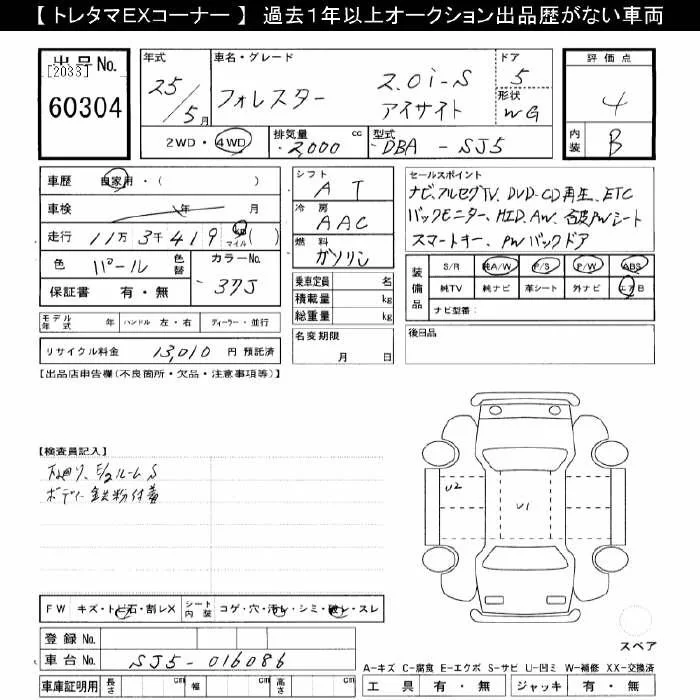 【 トレタマEXコーナー 】 過去1年以上オークション出品歴がない車両
出品No.
[2033]
60304
年式
25/5月
車名・グレード
フォレスター 2.0i-S アイサイト
ドア
5
形状
WG
評価点
4
内装
B
2WD・4WD
排気量 2,000 cc
型式 DBA - SJ5
車歴 自家用・( )
車検 年 月
走行 11万 3千419 km マイル ( )
色 パール 色替
カラーNo. 37J
保証書 有・無
シフト AT
冷房 AAC
燃料 ガソリン
乗車定員 名
積載量 kg
総重量 kg
名変期限
月 日
セールスポイント
ナビ、フルセグTV、DVD・CD再生、ETC
バックモニター、HID、AW、右PWシート
スマートキー、PWバックドア
装備品
S/R 純A/W P/S P/W ABS
純TV 純ナビ 革シート 外ナビ エアB
ナビ型番:
後日品
モデル年式 年 ハンドル 左・右 ディーラー・並行
リサイクル料金 13,010 円 預託済
【出品店申告欄(不良箇所・欠品・注意事項等)】
【検査員記入】
下廻り、E/2ルームS
ボディー鉄粉付着
U2
U1
FW キズ・トビ石・割レX
シート内装 コゲ・穴・汚レ・シミ・破レ・スレ
登録 No.
車台 No. SJ5-016086
車庫証明用 長さ cm 幅 cm 高さ cm
スペア
A-キズ C-腐食 E-エクボ S-サビ U-凹ミ W-補修 XX-交換済
工具 有・無 ジャッキ 有・無